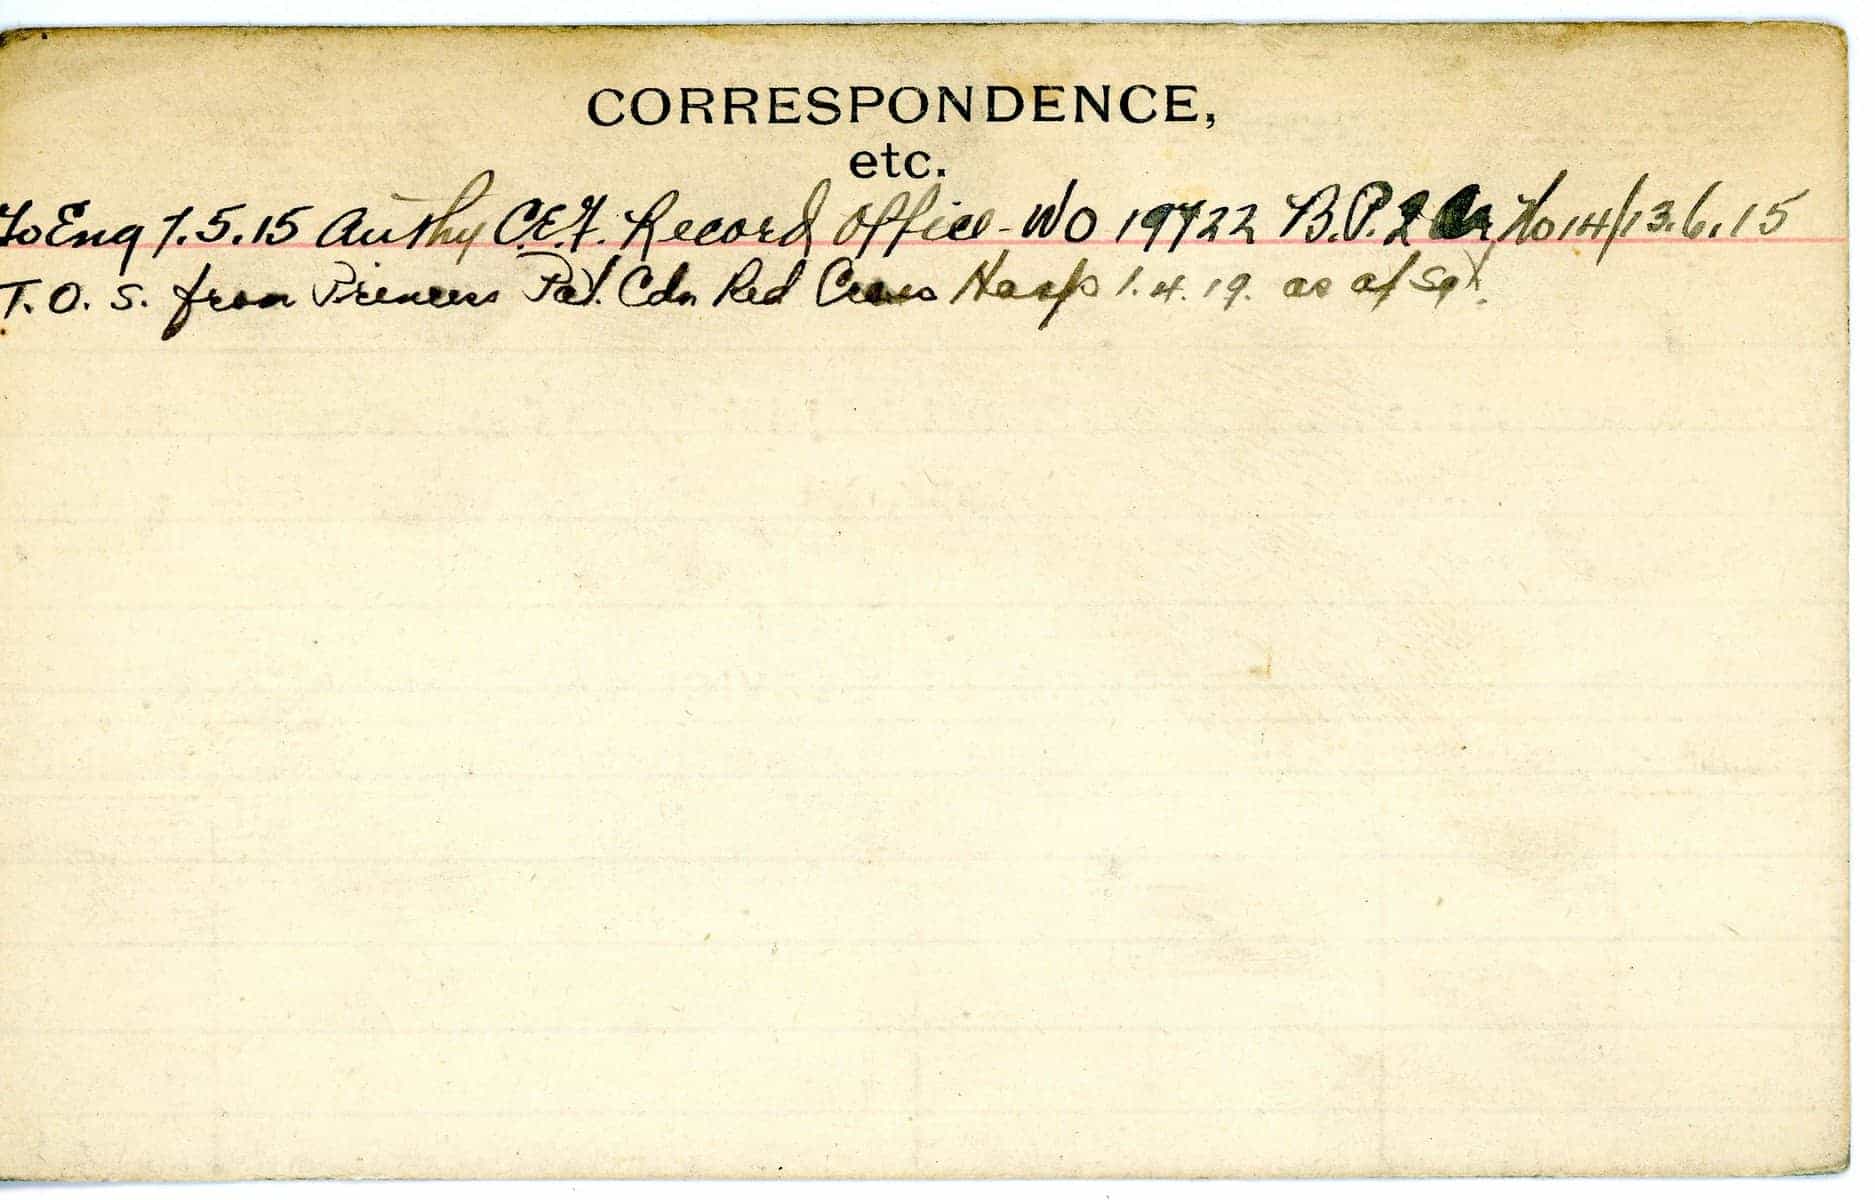 CORRESPONDENCE,
etc.
To Eng 7.5.15 Authy C.E.F. Record Office - WO 19722 B.P.2 No 14/13.6.15
T. O. S. from Princess Pat. Cdn Red Cross Hosp 1.4.19. as a/Sgt.